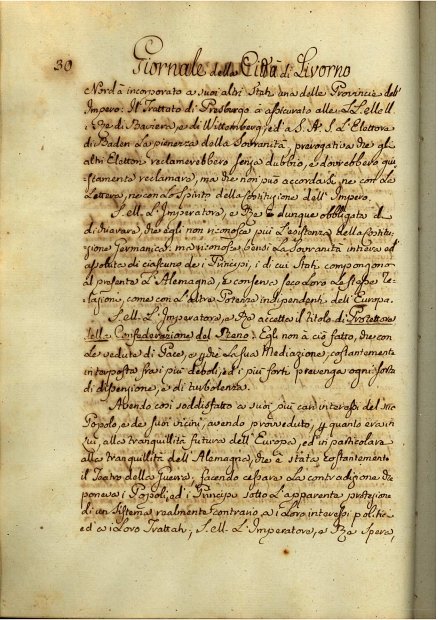 30 Giornale della Città di Livorno
Nord à incorporato a' suoi altri Stati una delle Provincie dell'
Impero: Il Trattato di Presburgo à assicurato alle LL. MM.
i Rè di Baviera, e di Wittemberg, ed a S. A. S. L'Elettore
di Baden La pienezza della Sovranità, prerogativa che gl'
altri Elettori reclamerebbero senza dubbio, e dovrebbero giu
stamente reclamare, ma che non può accordarsi, ne con la
Lettera, ne con lo Spirito della Costituzione dell'Impero.
S. M. L'Imperatore, e Rè è dunque obbligato di
dichiarare, che Egli non riconosce più L'esistenza della Costitu-
zione Germanica, ma riconosce bensì La Sovranità intiera ed
assoluta di ciascuno de' Principi, i di cui Stati compongono
al presente L'Alemagna, e conserva seco Loro Le stesse Re-
lazioni, come con L'altre Potenze indipendenti dell'Europa.
S. M. L'Imperatore, e Rè accetta il titolo di Protettore
della Confederazione del Reno: Egli non à ciò fatto, che con
Le vedute di Pace, e che La sua Mediazione, costantemente
interposta fra i più deboli, ed i più forti prevenga ogni sorta
di dissenzione, e di turbolenza.
Avendo così soddisfatto a' suoi più cari interessi del suo
Popolo, e de' suoi vicini, avendo provveduto, per quanto era in
Lui, alla tranquillità futura dell'Europa, ed in particolare
alla tranquillità dell'Alemagna, che è stata costantemente
il Teatro della Guerra, facendo cessare La contradizione che
poneva i Popoli, ed i Principi sotto L'apparente protezione
di un Sistema realmente contrario a' i Loro interessi politici
ed a' i Loro Trattati, S. M. L'Imperatore, e Rè spera,